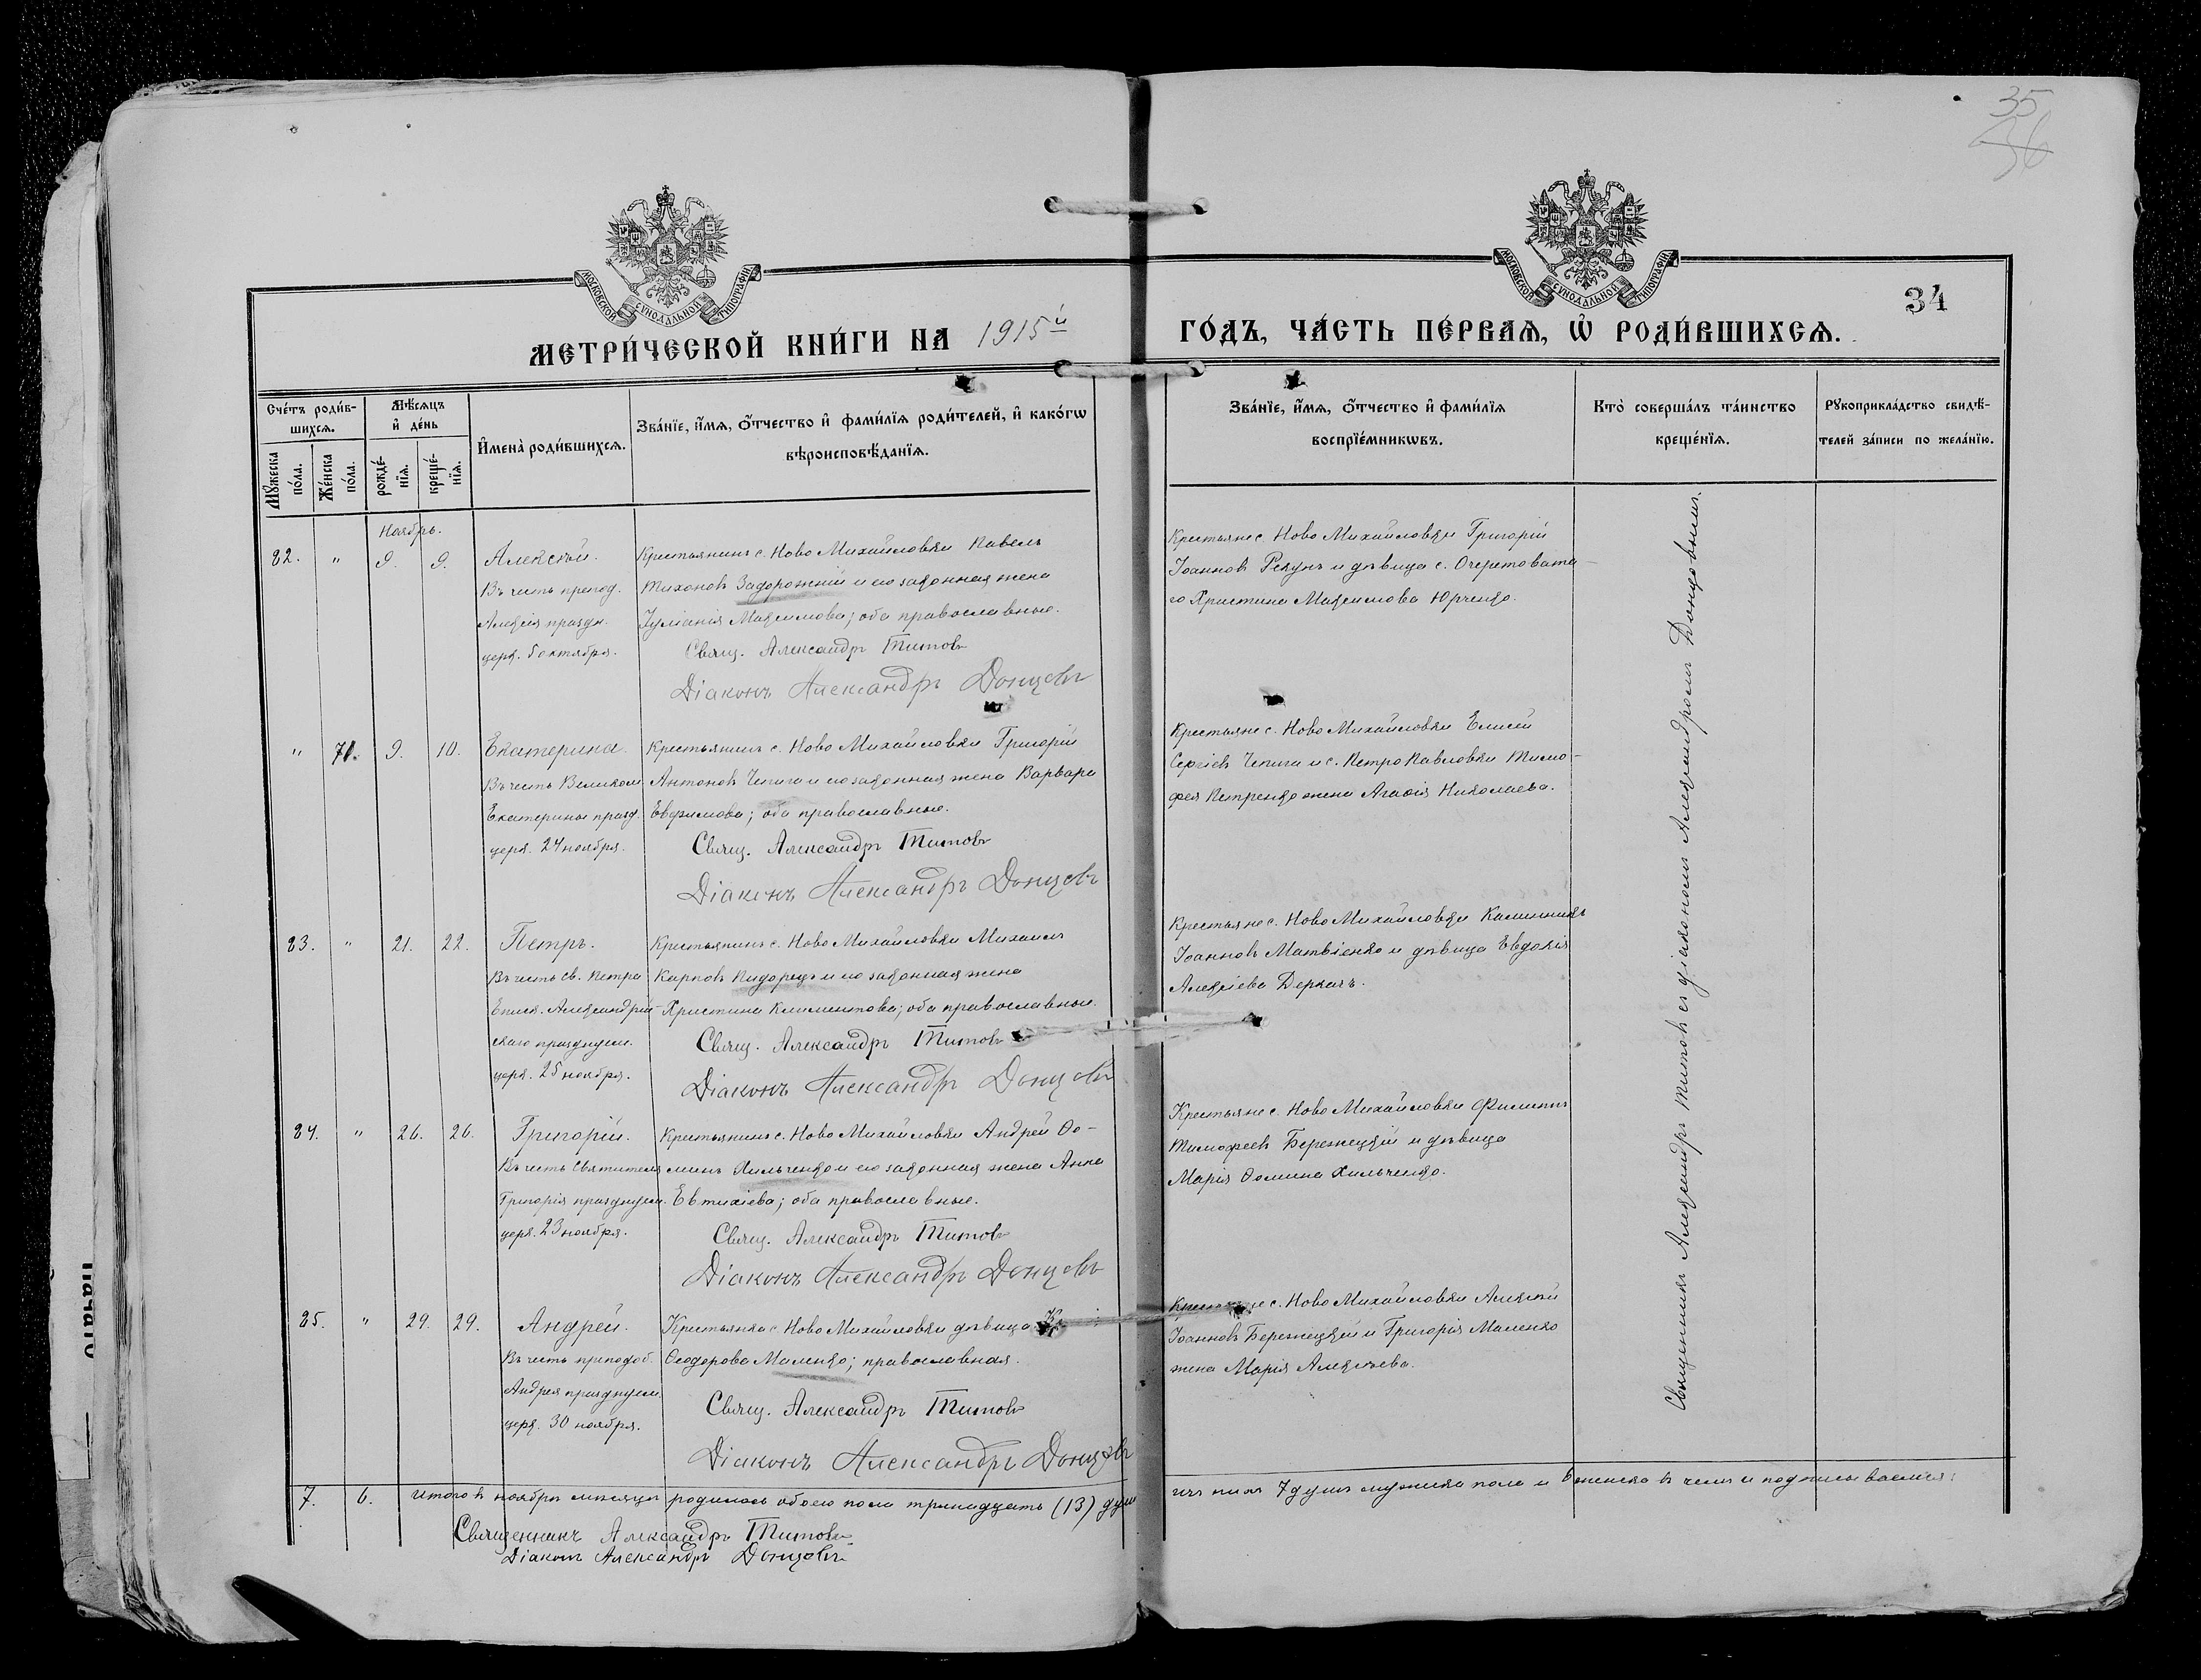 35
36
МОСКОВСКОЙ СѴНОДАЛЬНОЙ ТИПОГРАФІИ
МОСКОВСКОЙ СѴНОДАЛЬНОЙ ТИПОГРАФІИ
34
МЕТРИ́ЧЕСКОЙ КНИ́ГИ НА 1915й
ГО́ДЪ, ЧА́СТЬ ПЕ́РВАѦ, Ѽ РОДИ́ВШИХСѦ.
Сче́тъ роди́в-
шихсѧ.
Мꙋ́жеска по́ла.
Же́нска по́ла.
Мѣ́сѧцъ
и҆ де́нь
рожде́-
нїѧ.
креще́-
нїѧ.
И҆мена̀ роди́вшихсѧ.
Зва́нїе, и҆́мѧ, ѻ҆́тчество и҆ фами́лїѧ роди́телей, и҆ како́гѡ
вѣроисповѣ́данїѧ.
Зва́нїе, и҆́мѧ, ѻ҆́тчество и҆ фами́лїѧ
воспрїе́мникѡвъ.
Кто̀ соверша́лъ та́инство
креще́нїѧ.
Рꙋкоприкла́дство свидѣ́-
телей за́писи по жела́нїю.
Ноябрь.
82. " 9. 9. Алексѣй.
Въ честь препод.
Алексія праздн.
церк. 5 октября.
Крестьянинъ с. Ново Михайловки Павелъ
Тихоновъ Задорожній и его законная жена
Іуліанія Максимова; оба православные.
Свящ. Александръ Титовъ
Діаконъ Александръ Донцовъ
Крестьяне с. Ново Михайловки Григорій
Іоанновъ Рекунъ и дѣвица с. Очеретовата-
го Христина Максимова Юрченко.
" 71. 9. 10. Екатерина.
Въ честь Великом.
Екатерины празд.
церк. 24 ноября.
Крестьянинъ с. Ново Михайловки Григорій
Антоновъ Чепига и его законная жена Варвара
Евфимова; оба православные.
Свящ. Александръ Титовъ
Діаконъ Александръ Донцовъ
Крестьяне с. Ново Михайловки Елисей
Сергіевъ Чепига и с. Петро Павловки Тимо-
фея Петренко жена Агафія Николаева.
83. " 21. 22. Петръ.
Въ честь св. Петра
Еписк. Александрій-
скаго празднуем.
церк. 25 ноября.
Крестьянинъ с. Ново Михайловки Михаилъ
Карповъ Пидорецъ и его законная жена
Христина Климентова; оба православные.
Свящ. Александръ Титовъ
Діаконъ Александръ Донцовъ
Крестьяне с. Ново Михайловки Каллиникъ
Іоанновъ Матвіенко и дѣвица Евдокія
Алексіева Деркачъ.
84. " 26. 26. Григорій.
Въ честь Святителя
Григорія празднуем.
церк. 23 ноября.
Крестьянинъ с. Ново Михайловки Андрей Ѳо-
минъ Хильченко и его законная жена Анна
Евтихіева; оба православные.
Свящ. Александръ Титовъ
Діаконъ Александръ Донцовъ
Крестьяне с. Ново Михайловки Филиппъ
Тимофеевъ Бережецкій и дѣвица
Марія Ѳомина Хильченко.
85. " 29. 29. Андрей.
Въ честь преподоб.
Андрея празднуем.
церк. 30 ноября.
Крестьянка с. Ново Михайловки дѣвица
Ѳеодорова Маленко; православная.
Свящ. Александръ Титовъ
Діаконъ Александръ Донцовъ
Крестьяне с. Ново Михайловки Алексѣй
Іоанновъ Бережецкій и Григорія Маленко
жена Марія Алексѣева.
Священникъ Александръ Титовъ съ діакономъ Александромъ Донцовымъ.
7. 6. Итого въ ноябрѣ мѣсяцѣ родилось обоего пола тринадцать (13) душ
изъ нихъ 7 душъ мужеска пола и 6 женска въ чемъ и подписываемся:
Священникъ Александръ Титовъ
Діаконъ Александръ Донцовъ